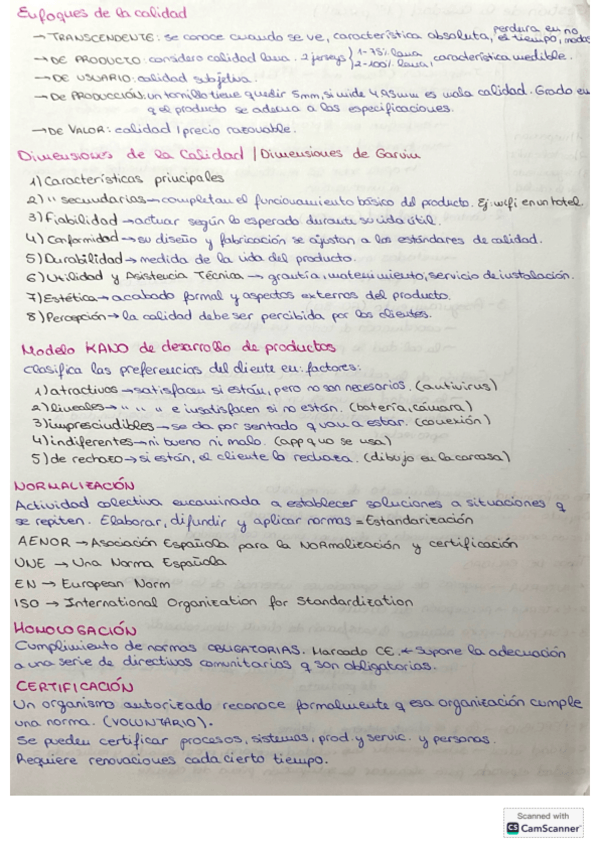 Enfoques de la calidad
→ TRANSCENDENTE: se conoce cuando se ve, característica absoluta, perdura en el tiempo, no modas
→ DE PRODUCTO: considero calidad lana. 2 jerseys } 1-75% lana 2-100% lana, característica medible.
→ DE USUARIO: calidad subjetiva.
→ DE PRODUCCIÓN: un tornillo tiene q medir 5mm, si mide 4,93mm es mala calidad. Grado en
q el producto se adecua a las especificaciones.
→ DE VALOR: calidad / precio razonable.
Dimensiones de la Calidad / Dimensiones de Garvin
1) Características principales
2) " secundarias → completan el funcionamiento básico del producto. Ej: wifi en un hotel.
3) Fiabilidad → actuar según lo esperado durante su vida útil.
4) Conformidad → su diseño y fabricación se ajustan a los estándares de calidad.
5) Durabilidad → medida de la vida del producto.
6) Utilidad y Asistencia Técnica → grautía, matenimiento, servicio de instalación.
7) Estética → acabado formal y aspectos externos del producto.
8) Percepción → la calidad debe ser percibida por los clientes.
Modelo KANO de desarrollo de productos
Clasifica las preferencias del cliente en: factores:
1) atractivos → satisfacen si están, pero no son necesarios. (antivirus)
2) lineales → " " " e insatisfacen si no están. (batería, cámara)
3) imprescindibles → se da por sentado q van a estar. (conexión)
4) indiferentes → ni bueno ni malo. (app q no se usa)
5) de rechazo → si están, el cliente lo rechaza. (dibujo en la carcasa)
NORMALIZACIÓN
Actividad colectiva encaminada a establecer soluciones a situaciones q
se repiten. Elaborar, difundir y aplicar normas = Estandarización
AENOR → Asociación Española para la NORmalización y certificación
UNE → Una Norma Española
EN → European Norm
ISO → International Organization for Standardization
HOMOLOGACIÓN
Cumplimiento de normas OBLIGATORIAS. Marcado CE. ← Supone la adecuación
a una serie de directivas comunitarias q son obligatorias.
CERTIFICACIÓN
Un organismo autorizado reconoce formalmente q esa organización cumple
una norma. (VOLUNTARIO).
Se pueden certificar procesos, sistemas, prod. y servic. y personas.
Requiere renovaciones cada cierto tiempo.
Scanned with
CS CamScanner